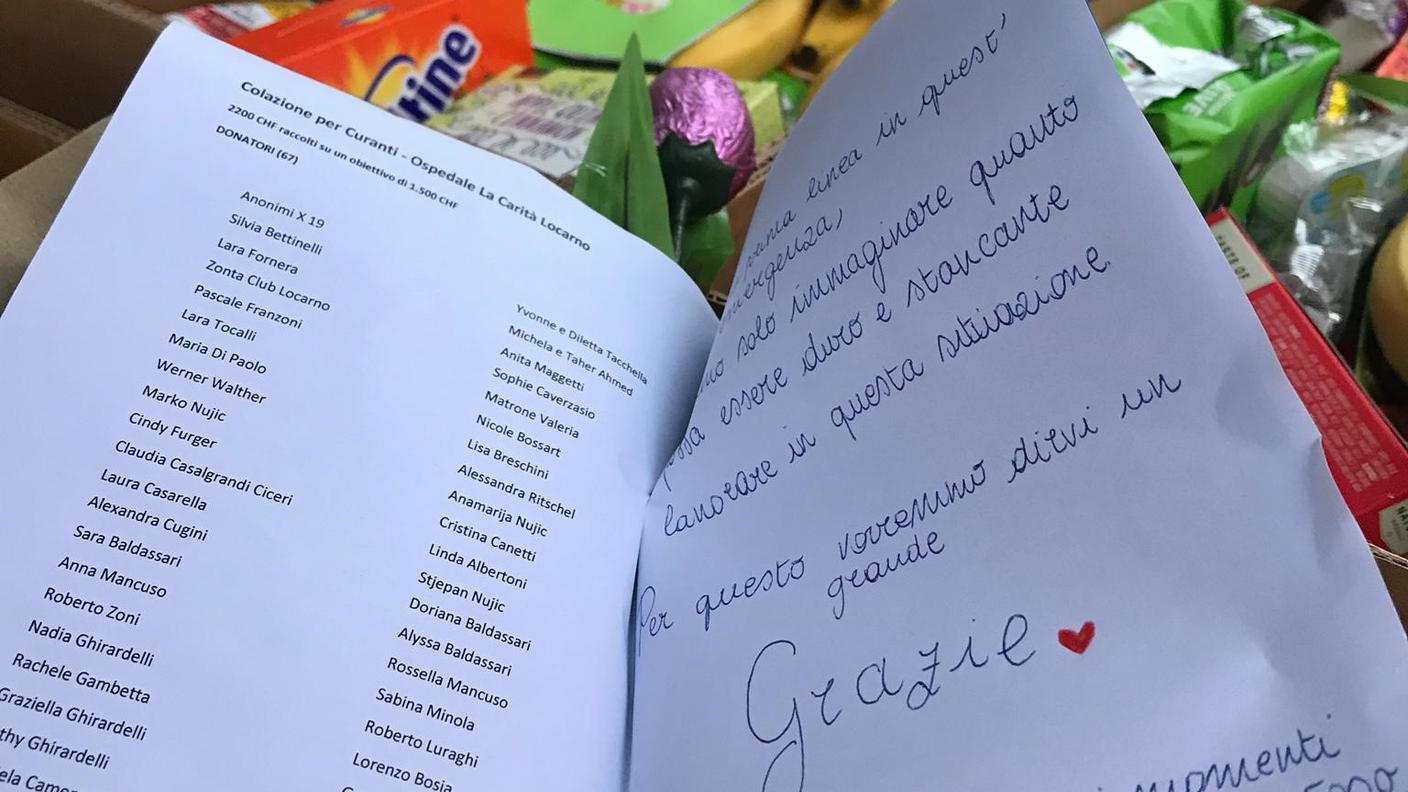 Colazione per Curanti - Ospedale La Carità Locarno
2200 CHF raccolti su un obiettivo di 1.500 CHF
DONATORI (67)
Anonimi X 19
Silvia Bettinelli
Lara Fornera
Zonta Club Locarno
Pascale Franzoni
Lara Tocalli
Maria Di Paolo
Werner Walther
Marko Nujic
Cindy Furger
Claudia Casalgrandi Ciceri
Laura Casarella
Alexandra Cugini
Sara Baldassari
Anna Mancuso
Roberto Zoni
Nadia Ghirardelli
Rachele Gambetta
Graziella Ghirardelli
thy Ghirardelli
Yvonne e Diletta Tacchella
Michela e Taher Ahmed
Anita Maggetti
Sophie Caverzasio
Matrone Valeria
Nicole Bossart
Lisa Breschini
Alessandra Ritschel
Anamarija Nujic
Cristina Canetti
Linda Albertoni
Stjepan Nujic
Doriana Baldassari
Alyssa Baldassari
Rossella Mancuso
Sabina Minola
Roberto Luraghi
Lorenzo Bosia
prima linea in quest'
mergenza,
solo immaginare quanto
essere duro e stancante
lavorare in questa situazione.
Per questo vorremmo dirvi un
grande
Grazie
momenti
tine